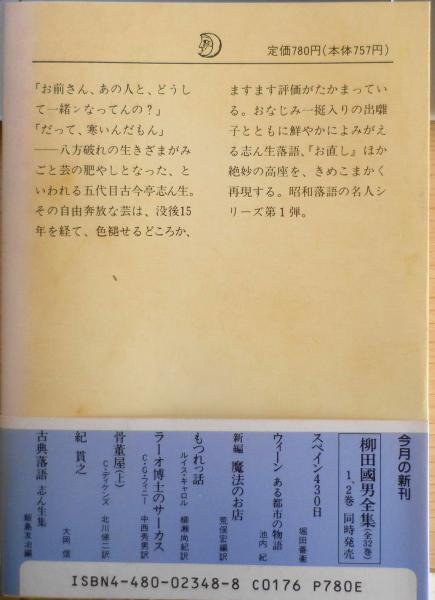 定価780円(本体757円)
「お前さん、あの人と、どうし
て一緒ンなってんの?」
「だって、寒いんだもん」
――八方破れの生きざまがみ
ごと芸の肥やしとなった、と
いわれる五代目古今亭志ん生。
その自由奔放な芸は、没後15
年を経て、色褪せるどころか、
ますます評価がたかまってい
る。おなじみ一挺入りの出囃
子とともに鮮やかによみがえ
る志ん生落語、『お直し』ほか
絶妙の高座を、きめこまかく
再現する。昭和落語の名人シ
リーズ第1弾。
今月の新刊
柳田國男全集(全32巻)
1、2巻 同時発売
スペイン430日
堀田善衞
ウィーン ある都市の物語
池内 紀
新編 魔法のお店
荒俣宏編訳
もつれっ話
ルイス・キャロル 柳瀬尚紀訳
ラーオ博士のサーカス
C・G・フィニー 中西秀男訳
骨董屋(上)
C・ディケンズ 北川悌二訳
紀 貫之
大岡 信
古典落語 志ん生集
飯島友治編
ISBN4-480-02348-8 C0176 P780E